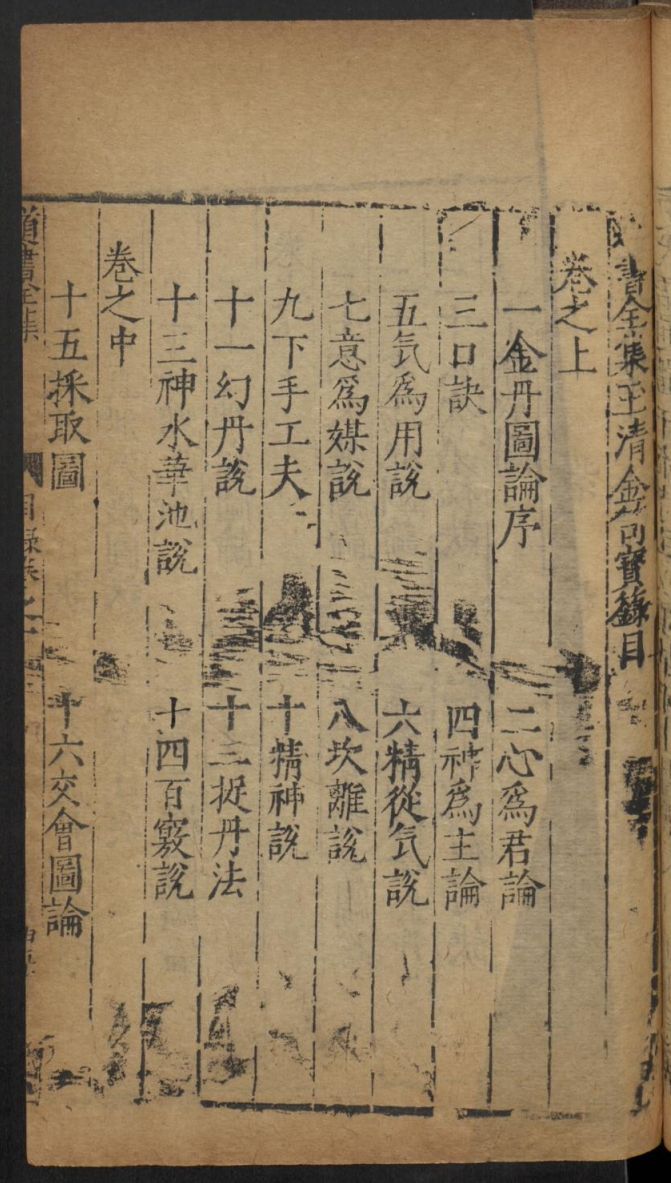 書全集玉清金笥寳籙目
卷之上
一金丹圖論序 二心爲君論
三口訣 四神爲主論
五気爲用說 六精從気說
七意爲媒說 八坎離說
九下手工夫 十精神說
十一幻丹說 十二捉丹法
十三神水華池說 十四百竅說
卷之中
十五採取圖 十六交會圖論
道書全集 目錄卷之一